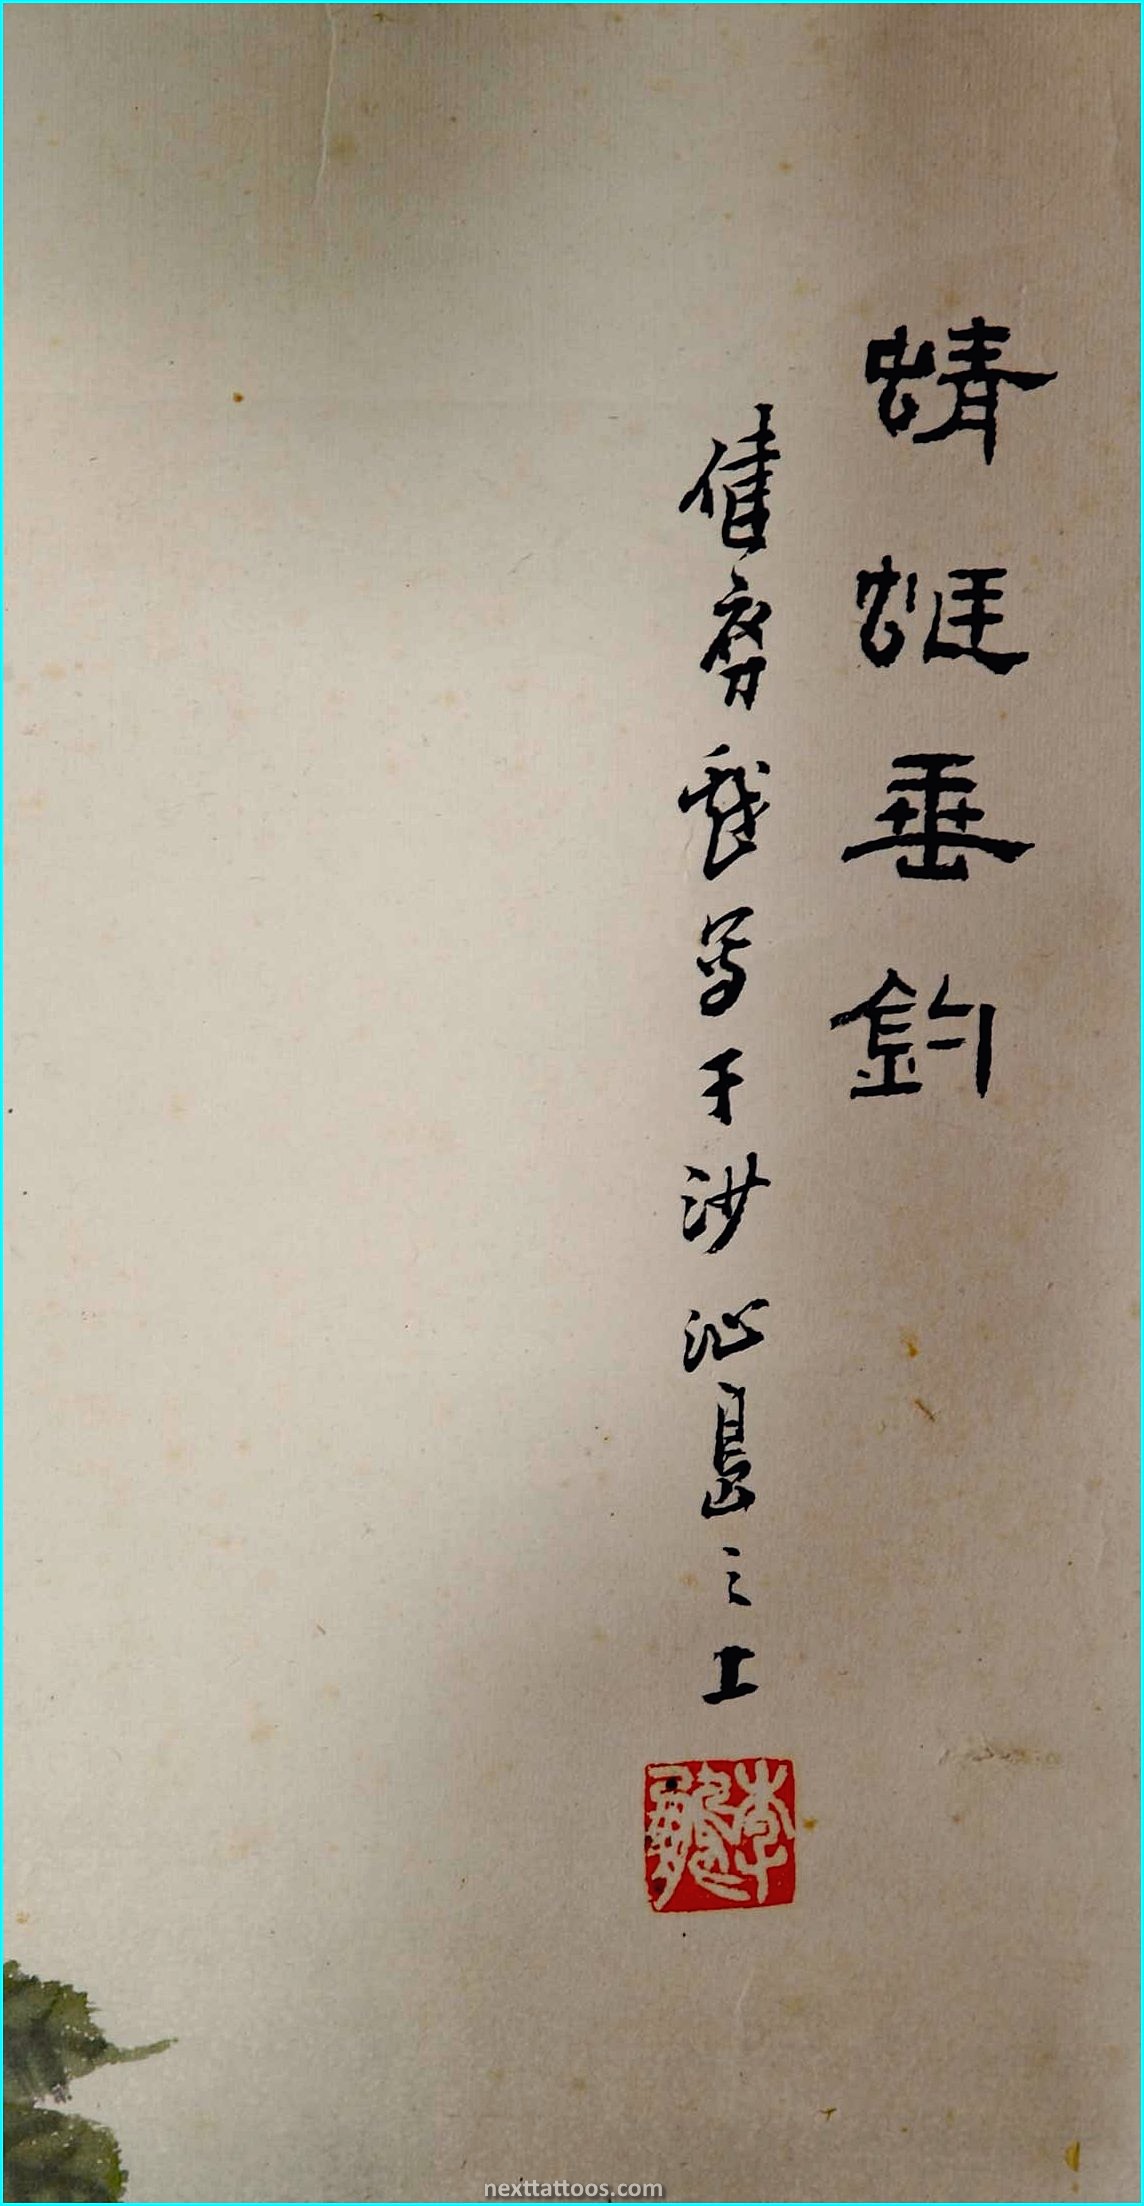 蜻蜓垂釣
齊戲寫于沁島之上
李
nexttattoos.com